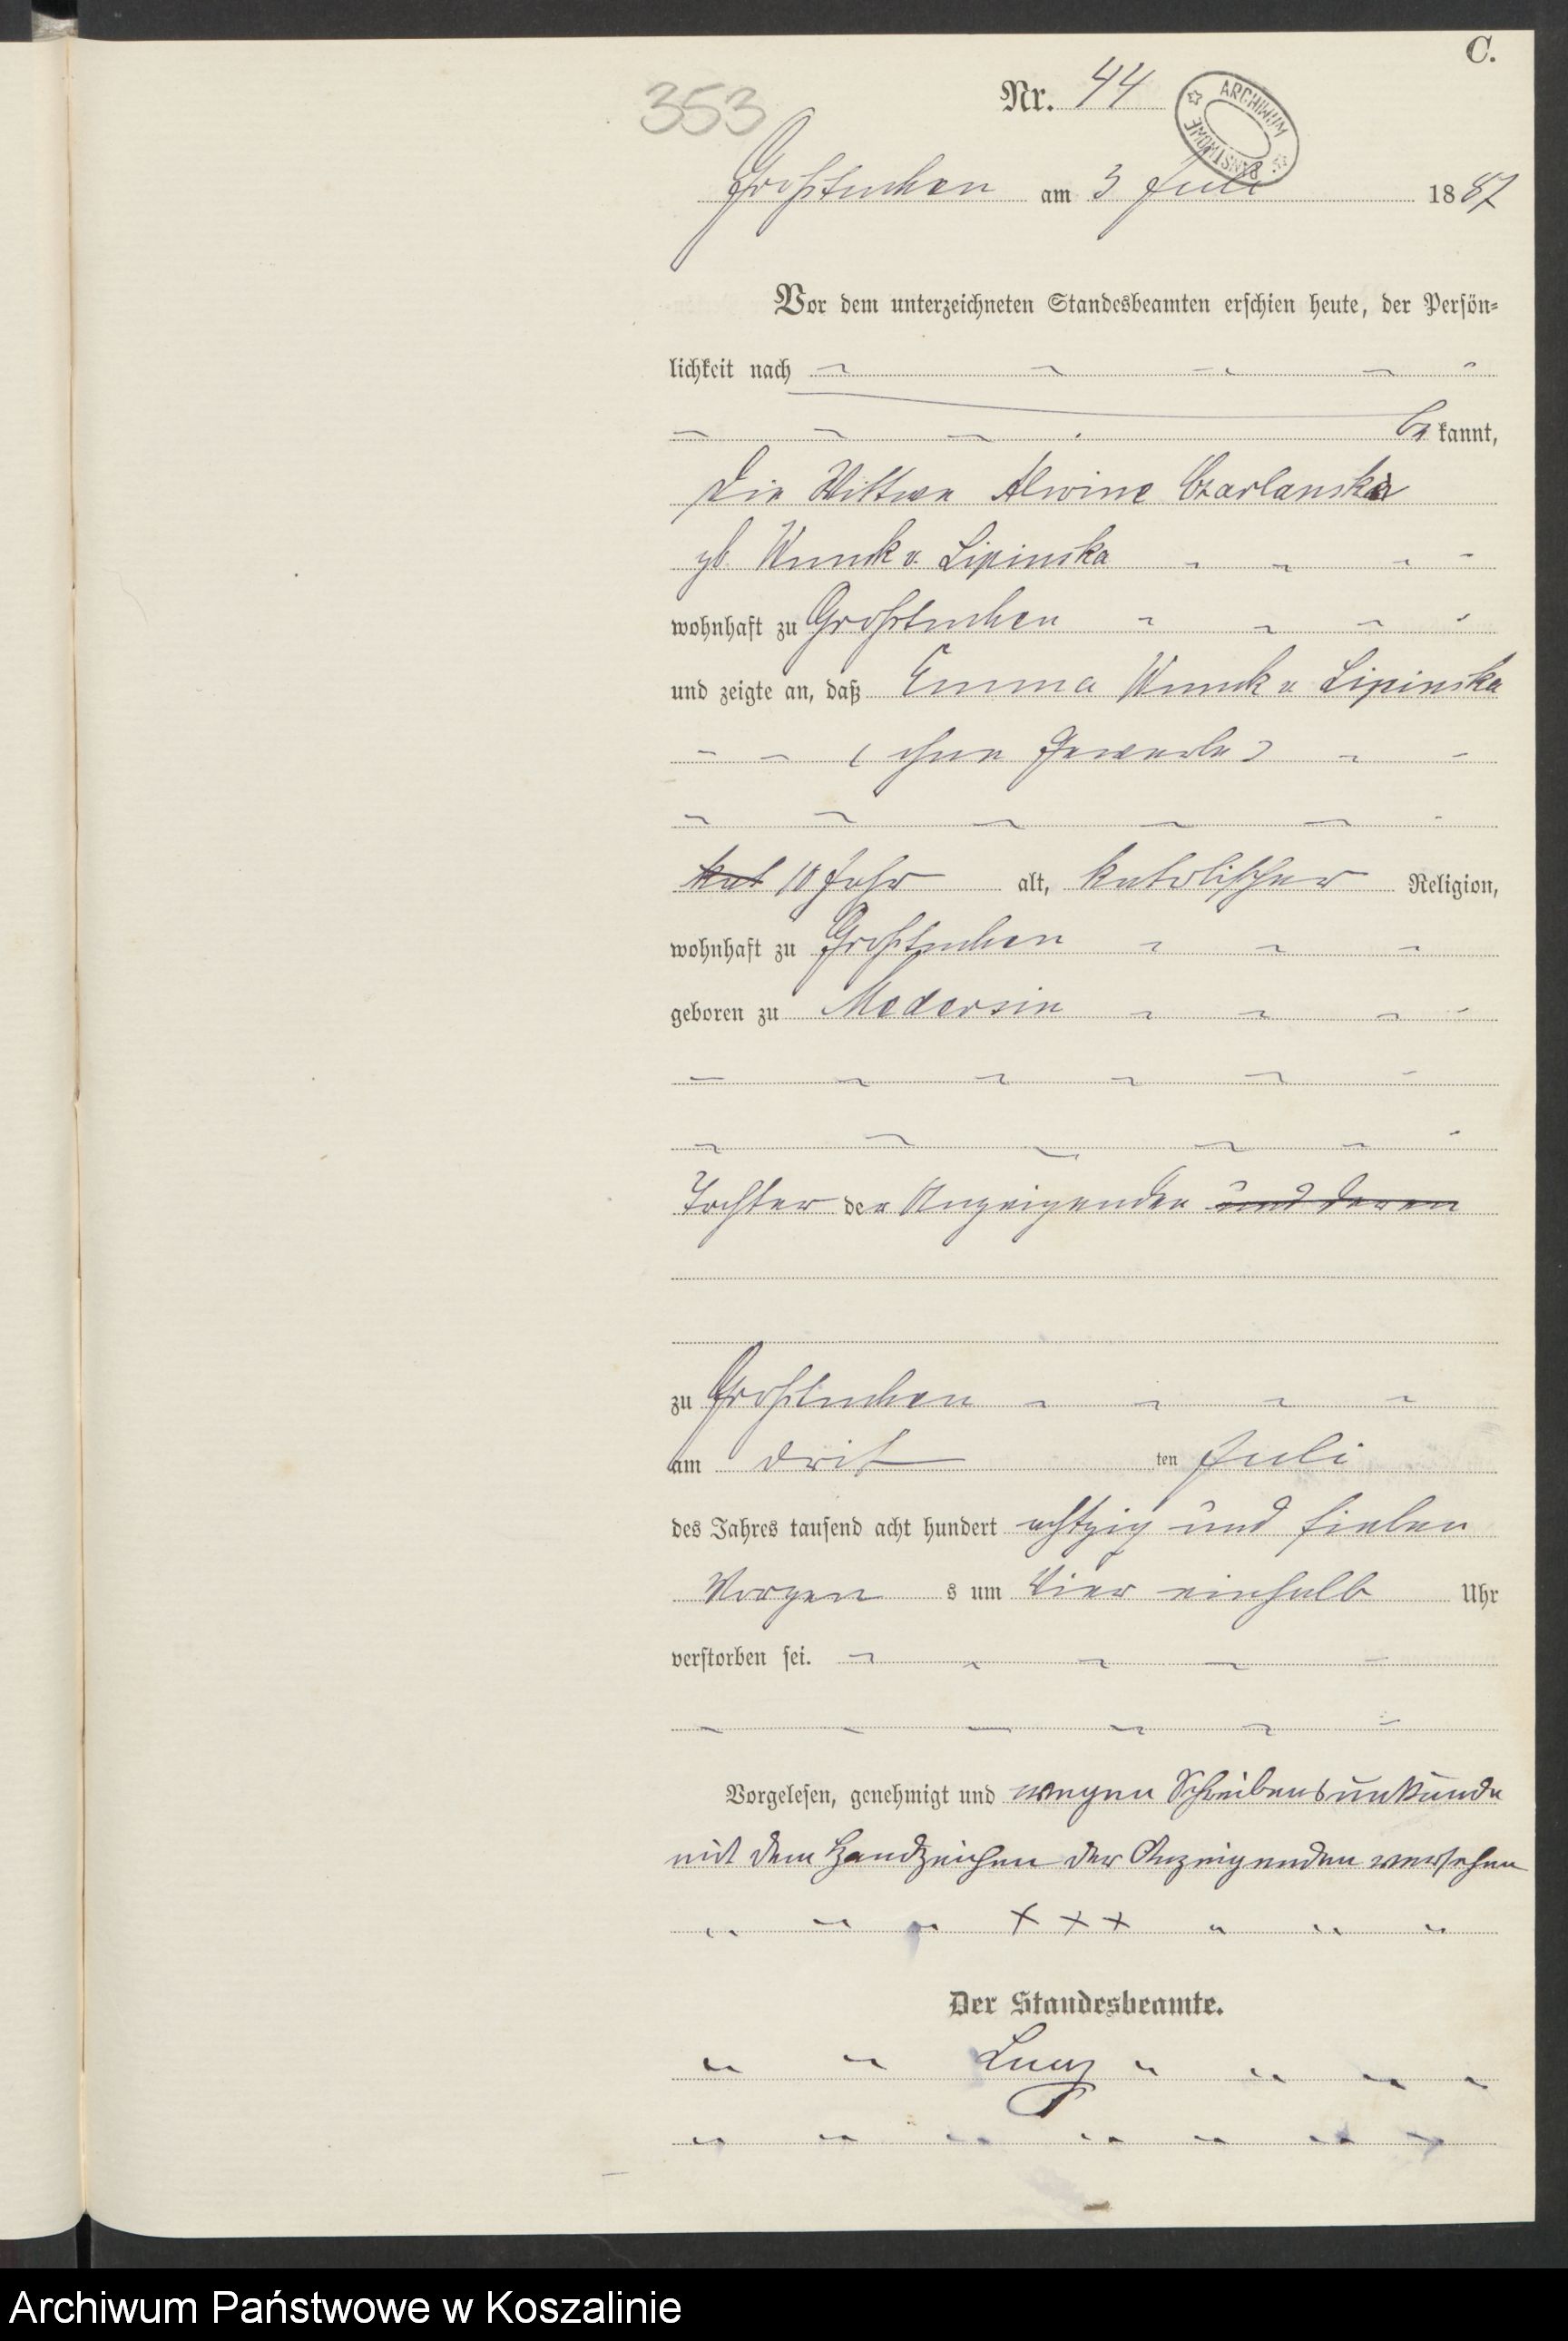 C.
353
Nr. 44
ARCHIWUM PAŃSTWOWE
Großtuchen am 3 Juli 1887
Vor dem unterzeichneten Standesbeamten erschien heute, der Persön-
lichkeit nach
be kannt,
die Wittwe Alwine Czarlanska
gb. Wnuck v. Lipinska
wohnhaft zu Großtuchen
und zeigte an, daß Emma Wnuck v Lipinska
(ohne Gewerbe)
kat 10 Jahr alt, katolischer Religion,
wohnhaft zu Großtuchen
geboren zu Modersin
Tochter der Anzeigenden und deren
zu Großtuchen
am drit ten Juli
des Jahres tausend acht hundert achtzig und sieben
Morgen s um Vier einhalb Uhr
verstorben sei.
Vorgelesen, genehmigt und wegen Schreibensunkunde
mit dem Handzeichen der Anzeigenden versehen
+ + +
Der Standesbeamte.
Archiwum Państwowe w Koszalinie